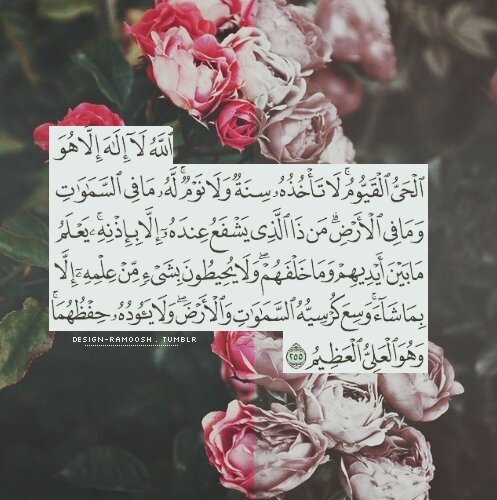 ٱللَّهُ لَآ إِلَٰهَ إِلَّا هُوَ
ٱلْحَىُّ ٱلْقَيُّومُ ۚ لَا تَأْخُذُهُۥ سِنَةٌ وَلَا نَوْمٌ ۚ لَّهُۥ مَا فِى ٱلسَّمَٰوَٰتِ
وَمَا فِى ٱلْأَرْضِ ۗ مَن ذَا ٱلَّذِى يَشْفَعُ عِندَهُۥٓ إِلَّا بِإِذْنِهِۦ ۚ يَعْلَمُ
مَا بَيْنَ أَيْدِيهِمْ وَمَا خَلْفَهُمْ ۖ وَلَا يُحِيطُونَ بِشَىْءٍ مِّنْ عِلْمِهِۦٓ إِلَّا
بِمَا شَآءَ ۚ وَسِعَ كُرْسِيُّهُ ٱلسَّمَٰوَٰتِ وَٱلْأَرْضَ ۖ وَلَا يَـُٔودُهُۥ حِفْظُهُمَا ۚ
وَهُوَ ٱلْعَلِىُّ ٱلْعَظِيمُ ٢٥٥
DESIGN-RAMOOSH . TUMBLR